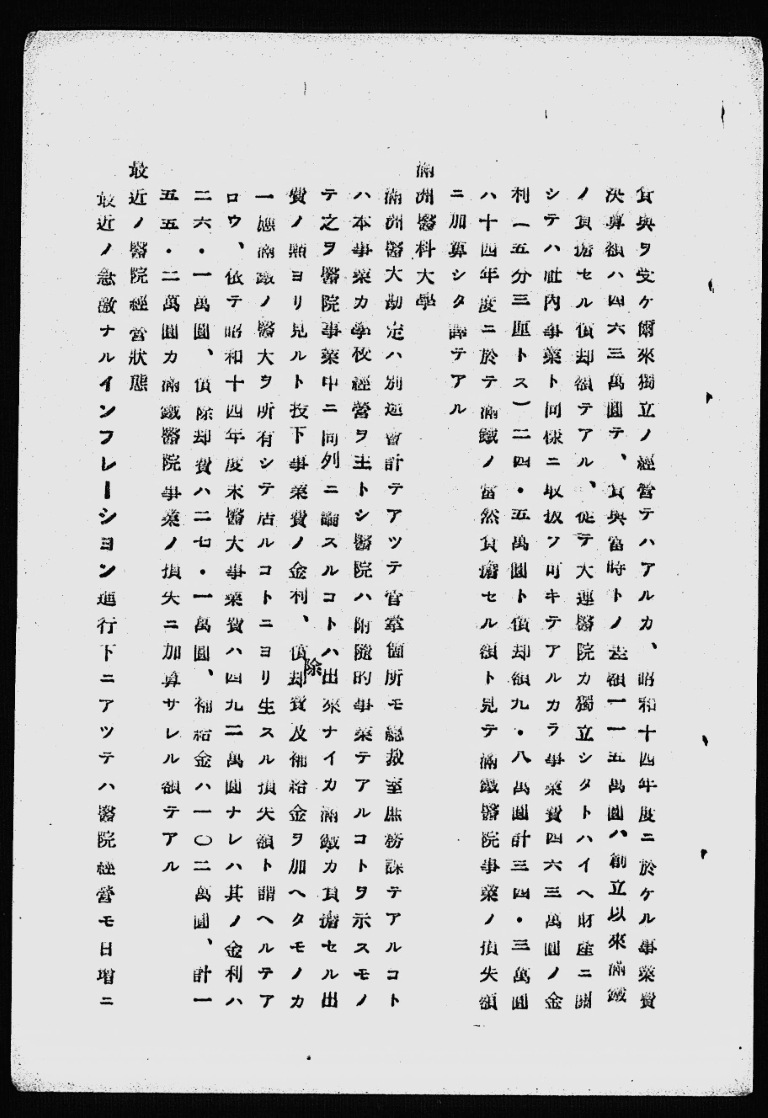 貸與ヲ受ケ爾來獨立ノ經營テハアルカ、昭和十四年度ニ於ケル事業費
決算額ハ四六三萬圓テ、貸與當時トノ差額一一五萬圓ハ創立以來滿鐵
ノ負擔セル償却額テアル、從テ大連醫院カ獨立シタトハイヘ財產ニ關
シテハ社內事業ト同樣ニ取扱フ可キテアルカラ事業費四六三萬圓ノ金
利（五分三厘トス）二四・五萬圓ト償却額九・八萬圓計三四・三萬圓
ハ十四年度ニ於テ滿鐵ノ當然負擔セル額ト見テ滿鐵醫院事業ノ損失額
ニ加算シタ譯テアル
滿洲醫科大學
滿洲醫大勘定ハ別途會計テアツテ管掌箇所モ總裁室庶務課テアルコト
ハ本事業カ學校經營ヲ主トシ醫院ハ附隨的事業テアルコトヲ示スモノ
テ之ヲ醫院事業中ニ同列ニ論スルコトハ出來ナイカ滿鐵カ負擔セル出
費ノ點ヨリ見ルト投下事業費ノ金利、償除却費及補給金ヲ加ヘタモノカ
一應滿鐵ノ醫大ヲ所有シテ居ルコトニヨリ生スル損失額ト謂ヘルテア
ロウ、依テ昭和十四年度末醫大事業費ハ四九二萬圓ナレハ其ノ金利ハ
二六・一萬圓、償除却費ハ二七・一萬圓、補給金ハ一〇二萬圓、計一
五五・二萬圓カ滿鐵醫院事業ノ損失ニ加算サレル額テアル
最近ノ醫院經營狀態
最近ノ急激ナルインフレーション進行下ニアツテハ醫院經營モ日增ニ